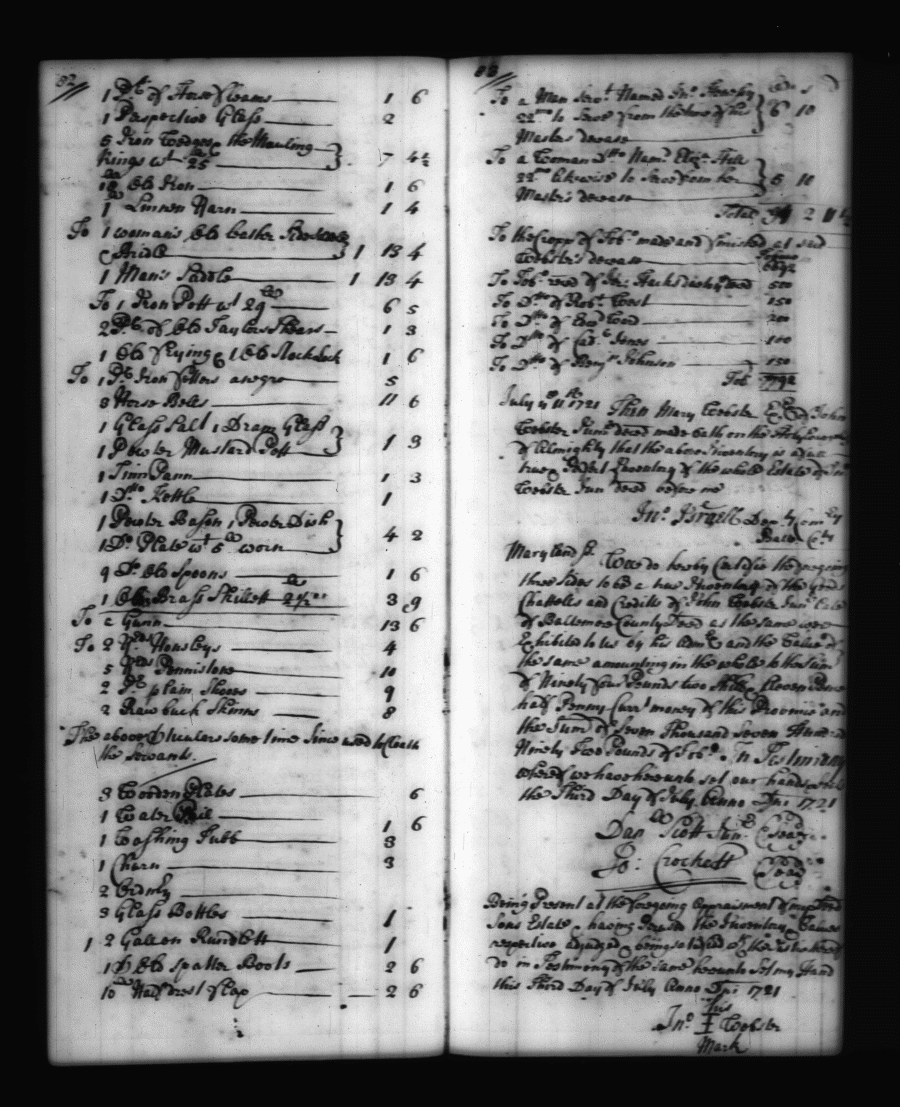 82
1 Pr of Horse fleams 1 6
1 Perspective Glass 2
5 Iron Wedges & the Mauling
Rings wt 25 7 4½
18 Old Iron 1 6
1 Linnen Yarn 1 4
To 1 woman's Old Leather Side Saddle
& Bridle 1 13 4
1 Man's Saddle 1 13 4
To 1 Iron Pott wt 29 6 5
2 Pr of Old Taylors Shears 1 3
1 Old frying & 1 Old Stocklock 1 6
To 1 Pr Iron fetters a negro 5
8 Horse Bells 11 6
1 Glass Salt 1 Dram Glass
1 Pewter Mustard Pott 1 3
1 Tinn Pann 1 3
1 Ditto Kettle 1
1 Pewter Bason 1 Pewter Dish
1 Do Plate wt 5 worn 4 2
9 Do Old Spoons 1 6
1 Old Brass Skillett 2½ 3 9
To a Gunn 13 6
To 2 4
5 Pennistone 10
2 Pr plain Shooes 9
2 Raw buck Skinns 8
The above some time Since used to Cloath
the Servants
3 Wooden Plates 6
1 Water Pail 1 6
1 Washing Tubb 3
1 Churn 3
2
3 Glass Bottles 1
1 2 Gallon Rundlett 1
1 Pr Old Spatter Boots 2 6
10 drest flax 2 6
83
To a Man Servt Named Jno
22 mo to Serve from the time of his 6 10
Masters decease
To a Woman Ditto Namd Eliza Hill
22 mo likewise to Serve from her 5 10
Master's decease
Total 94 2 11½
To the Cropp of Tobo made and finished at said
Webster's decease 6692
To Tobo reced of 500
To Ditto of Robt West 150
To Ditto of Edwd Wood 200
To Ditto of Cadr Jones 100
To Ditto of Benjn Johnson 150
Tob 7792
July ye 11th 1721 Then Mary Webster Exx of John
Webster Junr deced made Oath on the Holy
of Almighty that the above Inventory is a full
true & Perfect Inventory of the whole Estate of Jno
Webster Jun deced before me
Jno Israell Depty Comry
Balto Cty
Maryland ss. Wee do hereby Certifie the foregoing
three sides to be a true Inventory of the Goods
Chattells and Creditts of John Webster Junr Late
of Baltemore County Deced as the same were
Exhibited to us by his and the Value of
the same amounting in the whole to the Sum
of Ninety four Pounds two Shills Eleven Pence
half Penny Currt money of this Province and
the Sum of Seven Thousand Seven Hundred
Ninety Two Pounds of Tobo. In Testimony
whereof we have hereunto set our hands & Seals
the Third Day of July Anno Dni 1721
Danll Scott Junr (Seal)
Jo: Crockett (Seal)
Being Present at the foregoing Appraisment of my
Sons Estate & having the Inventory & Values
respective adjudged & being satisfied of the
do in Testimony of the same hereunto Set my Hand
this Third Day of July Anno Dni 1721
his
Jno I Webster
Mark